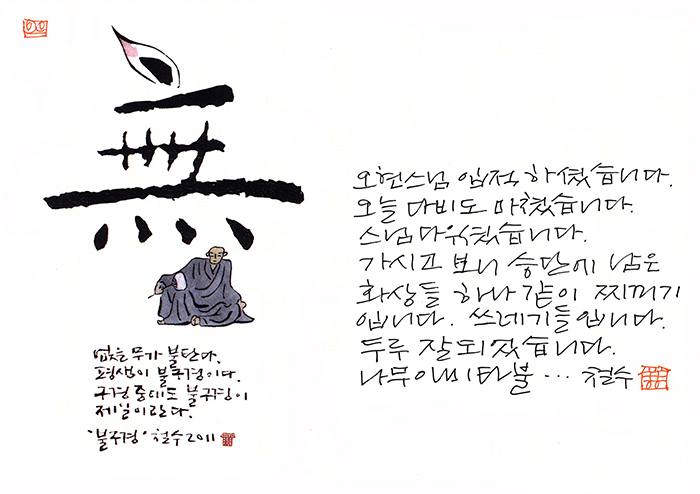 無
없을 무가 불탄다.
평생이 불구경이다.
구경 중에도 불구경이
제일이란다.
'불구경' 철수 2011
오현스님 입적 하셨습니다.
오늘 다비도 마쳤습니다.
스님다워셨습니다.
가시고 보니 승단에 남은
화상들 하나 같이 찌꺼기
입니다. 쓰레기들입니다.
두루 잘되었습니다.
나무아미타불… 철수